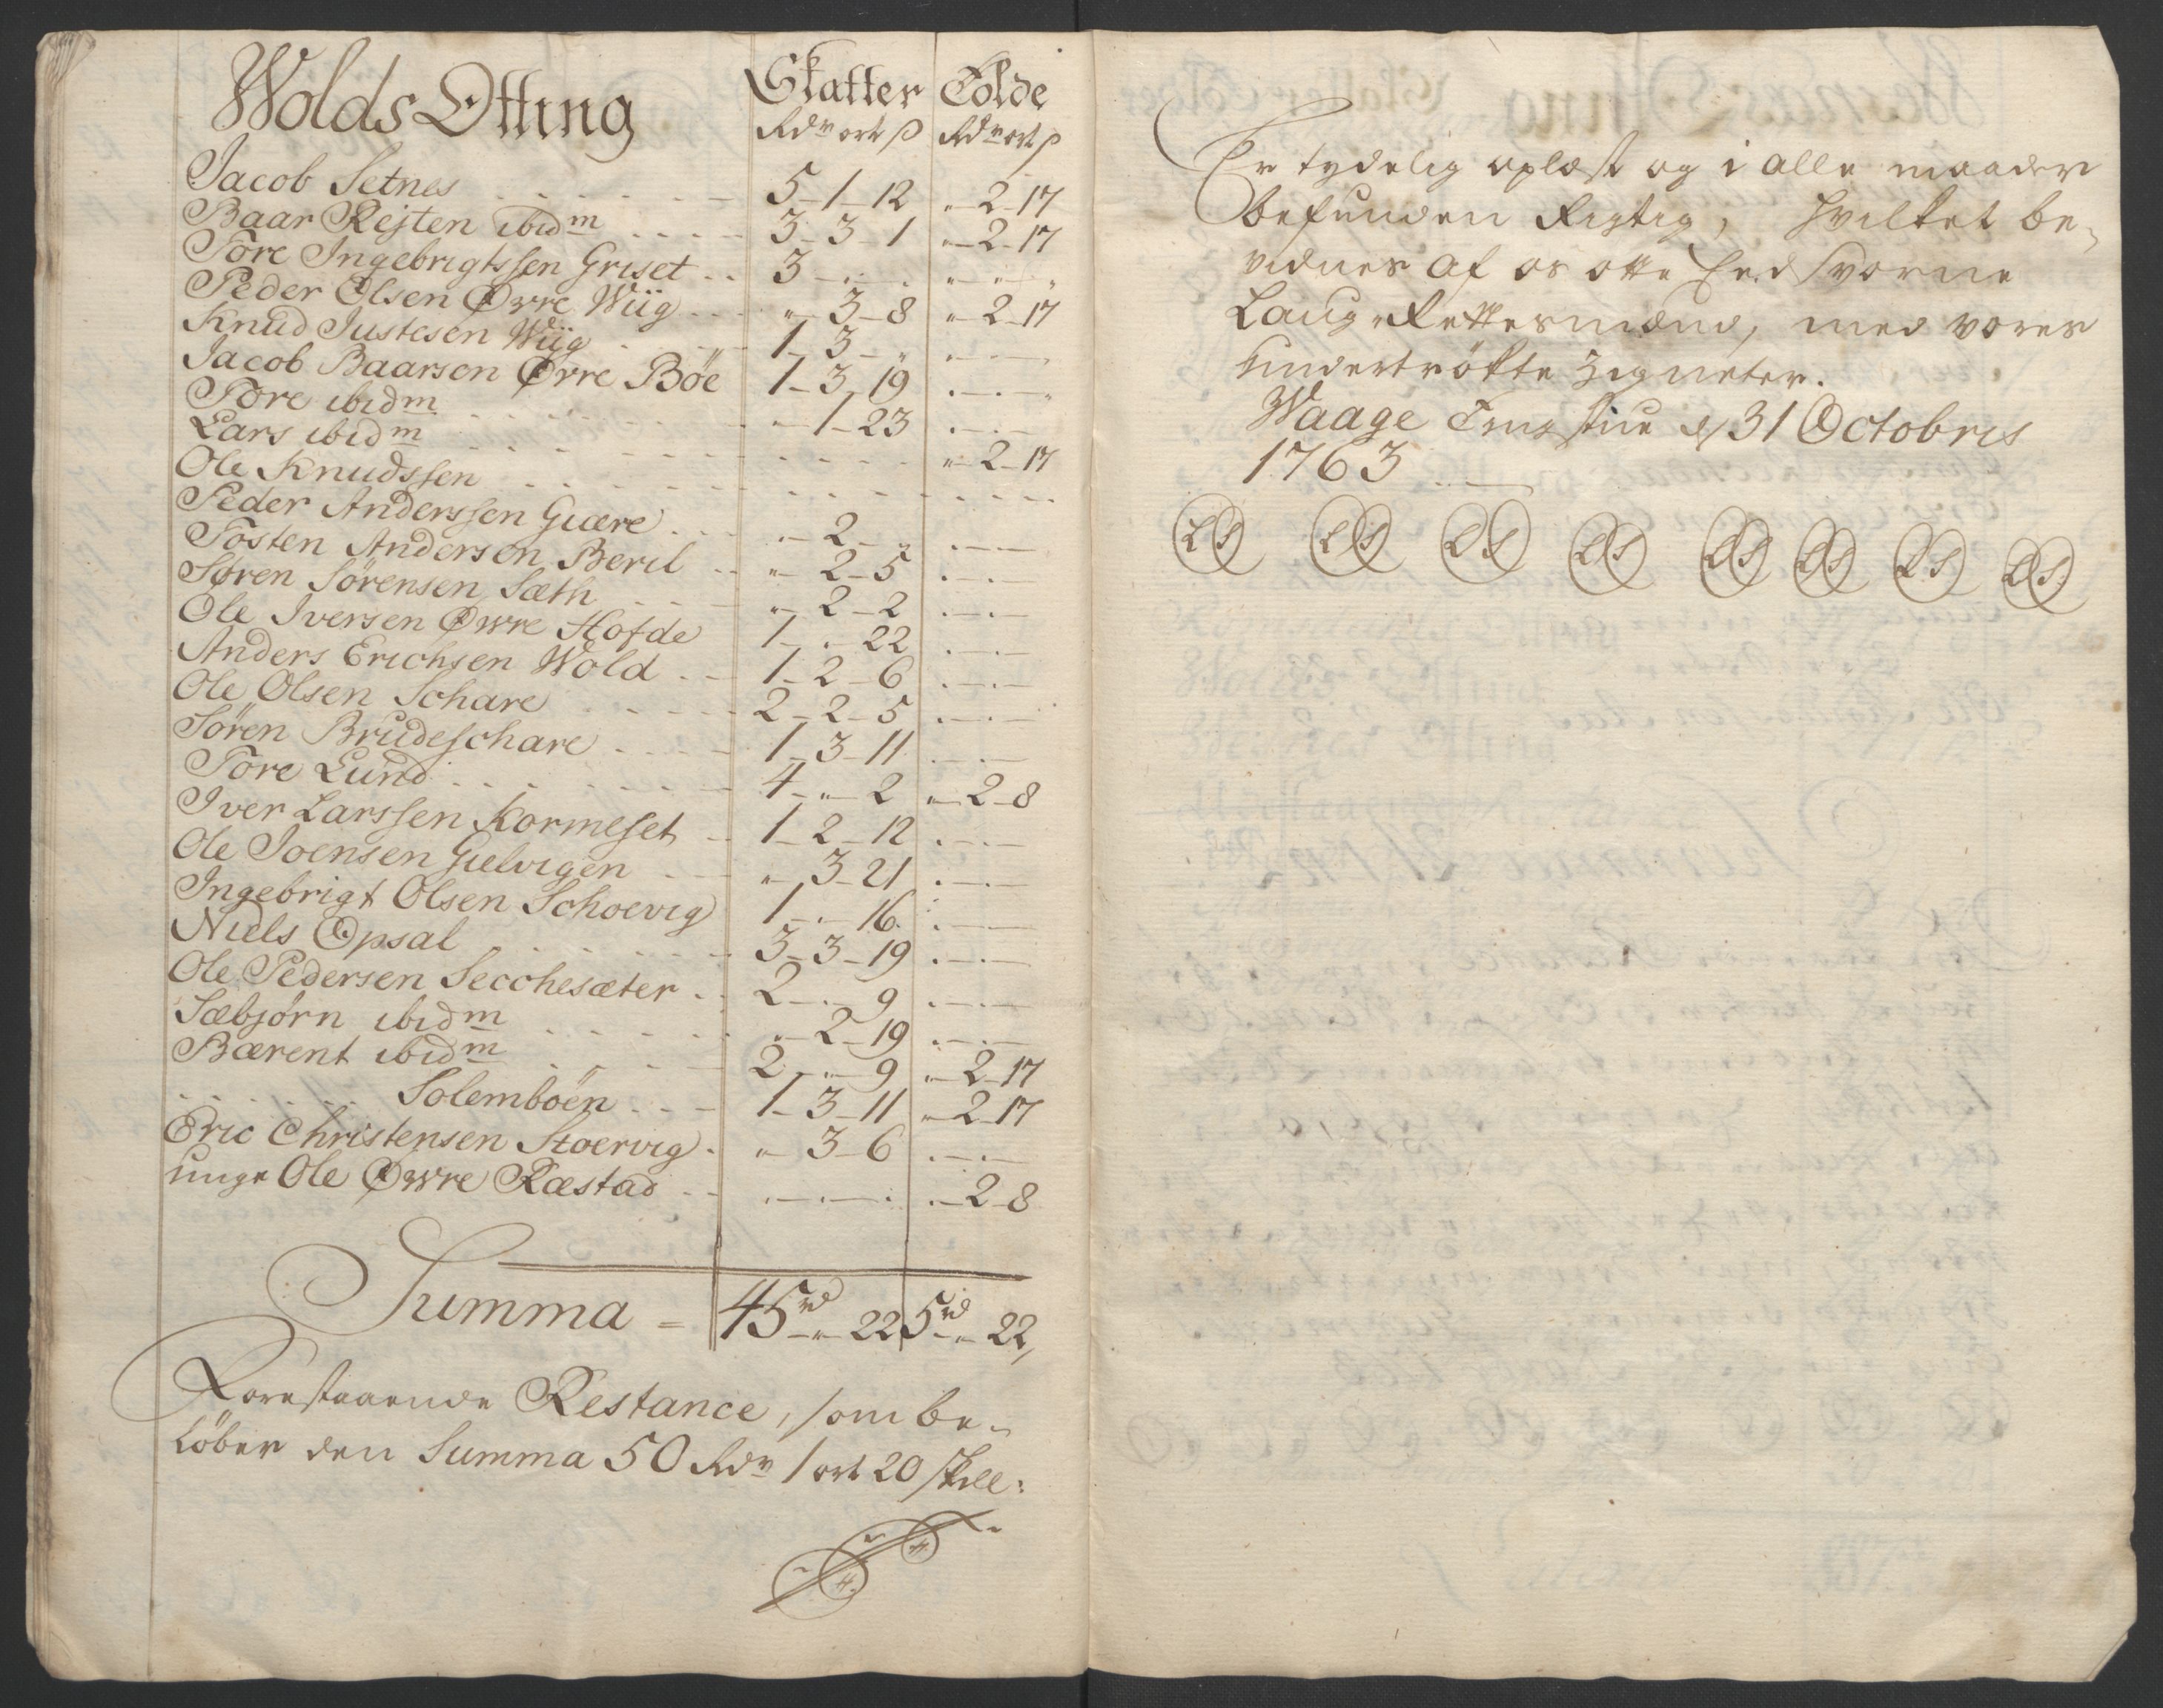 Wolds Otting Skatter Tolde
Rdr ort ß Rdr ort ß
Jacob Setnes 5 - 1 - 12 " - 2 - 17
Baar Rejten ibidm 3 - 3 - 1 " - 2 - 17
Tore Ingebrigtssen Griset 3 - " - " " - " - "
Peder Olsen Øvre Wiig " - 3 - 8 " - 2 - 17
Knud Justesen Wiig 1 - 3 - "
Jacob Baarsen Øvre Böe 1 - 3 - 19
Tore ibidm " - 1 - 23
Lars ibidm " - 2 - 17
Ole Knudssen
Peder Anderssen Giære " - 2 - "
Tosten Andersen Beril " - 2 - 5
Søren Sörensen Sæth " - 2 - 2
Ole Iversen Øwre Hofde 1 - " - 22
Anders Erichsen Wold 1 - 2 - 6
Ole Olsen Schare 2 - 2 - 5
Sören Brudeschare 1 - 3 - 11
Tore Lund 4 - " - 2 " - 2 - 8
Iver Larssen Kormeset 1 - 2 - 12
Ole Joensen Gielvigen " - 3 - 21
Ingebrigt Olsen Schoevig 1 - " - 16
Niels Opsal 3 - 3 - 19
Ole Pedersen Secchesæter 2 - " - 9
Sæbjørn ibidm " - 2 - 19
Bærent ibidm 2 - " - 9 " - 2 - 17
Solemböen 1 - 3 - 11 " - 2 - 17
Eric Christensen Stoervig " - 3 - 6
unge Ole Øwre Ræstad " - 2 - 8
Summa = 45rd - " - 22 5rd - " - 22,
Forestaaende Restance, som be-
löber den Summa 50 Rdr 1 ort 20 skill:
Er tydelig oplæst og i alle maader
befunden Rigtig, hvilket be-
vidnes af os otte Eed Svorne
Laug Rettesmænd, med vores
undertrökte Zigneter.
Waage Tingstue d 31 Octobris
1763
LS LS LS LS LS LS LS LS